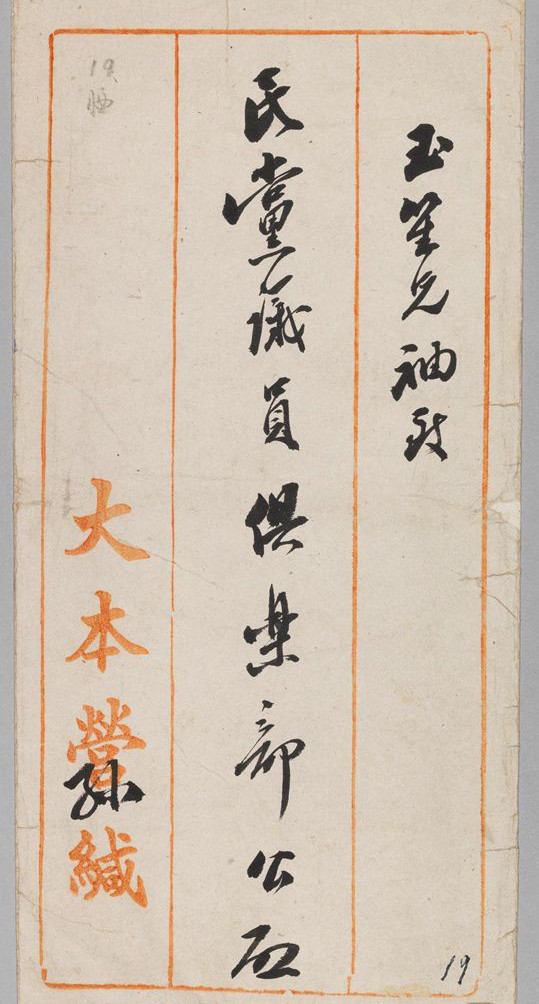 玉笙兄袖致
民黨議員俱樂部公啟
大本營孫緘
19
19